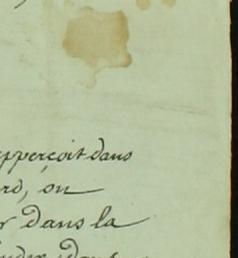 apperçoit dans
ord, on
r dans la